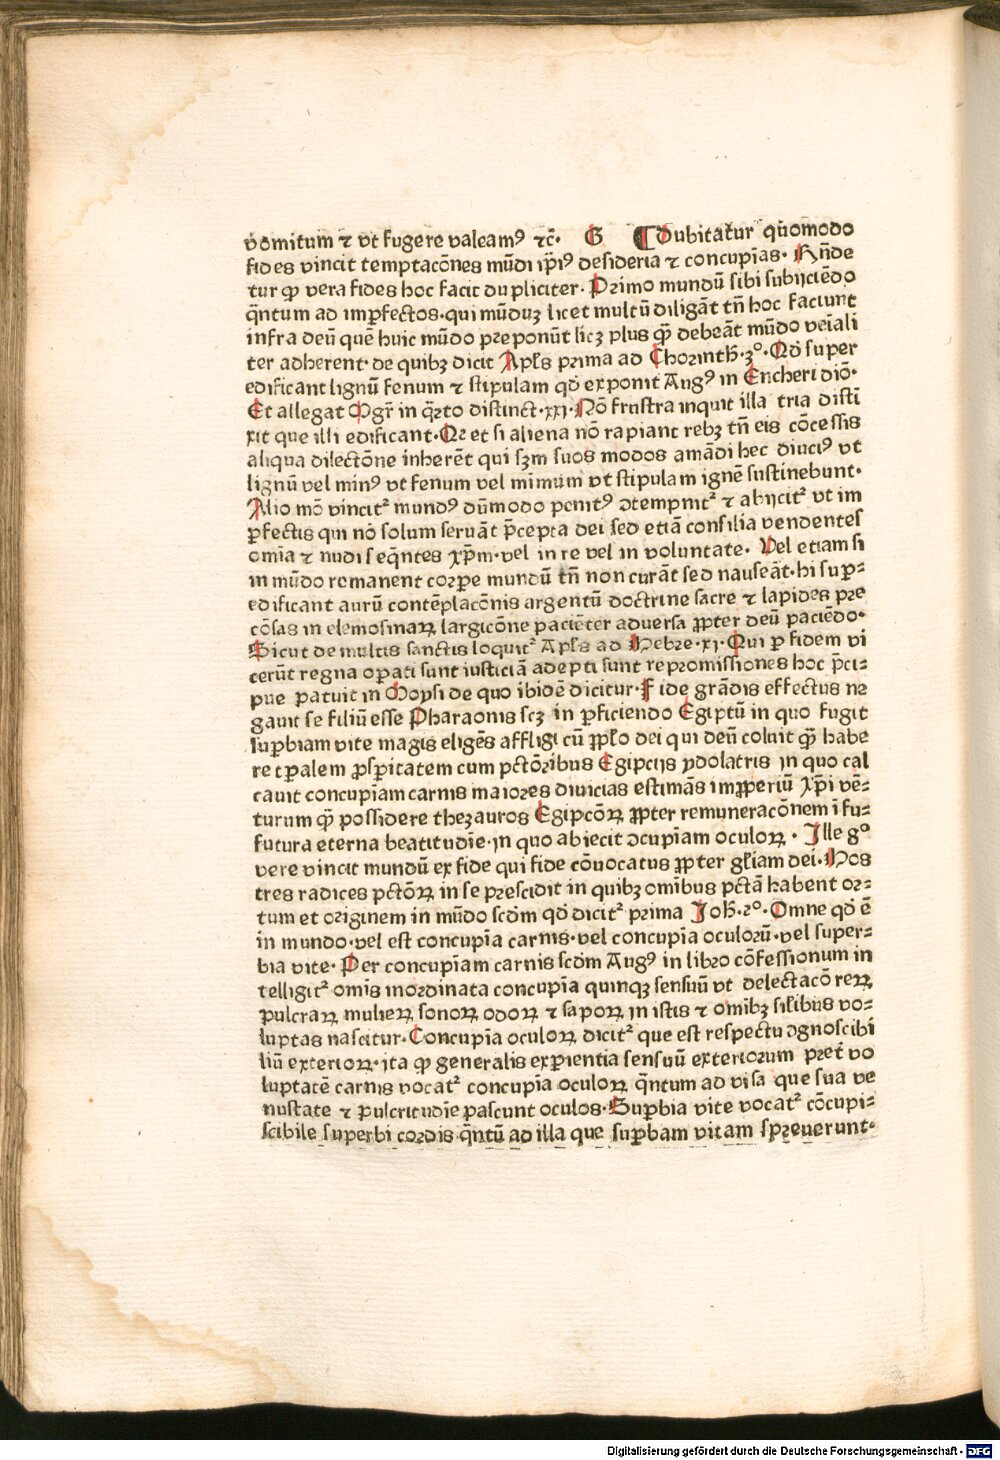 vomitum ⁊ vt fugere valeamꝰ ⁊c̄· G ¶ Dubitatur qūomodo
fides vincit temptacōnes mūdi ip̄iꝰ desideria ⁊ concupīas· Rn̄de
tur ꝙ vera fides hoc facit dupliciter· Primo mundū sibi subijciēdo
q̄ntum ad imꝑfectos· qui mūduꝫ licet multū diligāt tn̄ hoc faciunt
infra deū quē huic mūdo preponūt licꝫ plus qꝫ̄ debeāt mūdo veīali
ter adherent· de quibꝫ dicit Apl̄s prima ad Chorinth̄·ꝫ°· Qd̄ super
edificant lignū fenum ⁊ stipulam qd̄ exponit Augꝰ in Encheridiō·
Et allegat Mgr̄ in q̄rto distinct·xxj· Nō frustra inquit illa tria disti
xit que illi edificant· Qꝛ et si aliena nō rapiant rebꝫ tn̄ eis cōcessis
aliqua dilectōne inherēt qui sꝫm suos modos amādi hec diuciꝰ vt
lignū vel minꝰ vt fenum vel mīmum vt stipulam ignē sustinebunt·
Alio mō vincit᷑ mundꝰ dūmodo penitꝰ ɔtempnit᷑ ⁊ abijcit᷑ vt im
ꝑfectis qui nō solum seruāt p̄cepta dei sed etiā consilia vendentes
om̄ia ⁊ nudi seq̄ntes xp̄m· vel in re vel in voluntate· Vel etiam si
in mūdo remanent corꝑe mundū tn̄ non curāt sed nauseāt· hi suꝑ⸗
edificant aurū contēplacōnis argentū doctrine sacre ⁊ lapides pre
cōsas in elemosinaꝝ largicōne paciēter aduersa ꝓpter deū paciēdo·
Sicut de multis sanctis loquit᷑ Apl̄s ad Hebre·xj· Qui ꝑ fidem vi
cerūt regna oꝑati sunt iusticiā adepti sunt repromissiones hoc p̄ci⸗
pue patuit in Moysi de quo ibidē dicitur· Fide grādis effectus ne
gauit se filiū esse Pharaonis scꝫ in ꝑficiendo Egiptū in quo fugit
suꝑbiam vite magis eligēs affligi cū ꝓpl̄o dei qui deū coluit qꝫ̄ habe
re tꝑalem ꝓsꝑitatem cum pctōribus Egipcijs ydolatris in quo cal
cauit concupīam carnis maiores diuicias estimās imꝓperiū Xp̄i vē⸗
turum qꝫ̄ possidere theꝫauros Egipcōꝝ ꝓpter remuneracōnem ī fu⸗
futura eterna beatitudīe· in quo abiecit ɔcupīam oculoꝝ · Ille g°
vere vincit mundū ex fide qui fide cōuocatus ꝓpter gl̄iam dei· Hos
tres radices pctōꝝ in se prescidit in quibꝫ omībus pctā habent or⸗
tum et originem in mūdo scd̄m qd̄ dicit᷑ prima Joh̄·2°· Omne qd̄ ē
in mundo· vel est concupīa carnis· vel concupīa oculorū· vel super⸗
bia vite· Per concupīam carnis scd̄m Augꝰ in libro cōfessionum in
telligit᷑ omīs inordinata concupīa quinqꝫ sensuū vt delectacō reꝝ
pulcraꝝ mulieꝝ sonoꝝ odoꝝ ⁊ sapoꝝ in istis ⁊ omībꝫ sil̄ibus vo⸗
luptas nascitur· Concupīa oculoꝝ dicit᷑ que est respectu ɔgnoscibi
liū exterioꝝ· ita ꝙ generalis exꝑientia sensuū exteriorum preter vo
luptatē carnis vocat᷑ concupīa oculoꝝ q̄ntum ad visa que sua ve
nustate ⁊ pulcritudīe pascunt oculos· Suꝑbia vite vocat᷑ cōcupi⸗
scibile superbi cordis q̄ntū ad illa que suꝑbam vitam spreuerunt·
Digitalisierung gefördert durch die Deutsche Forschungsgemeinschaft - DFG